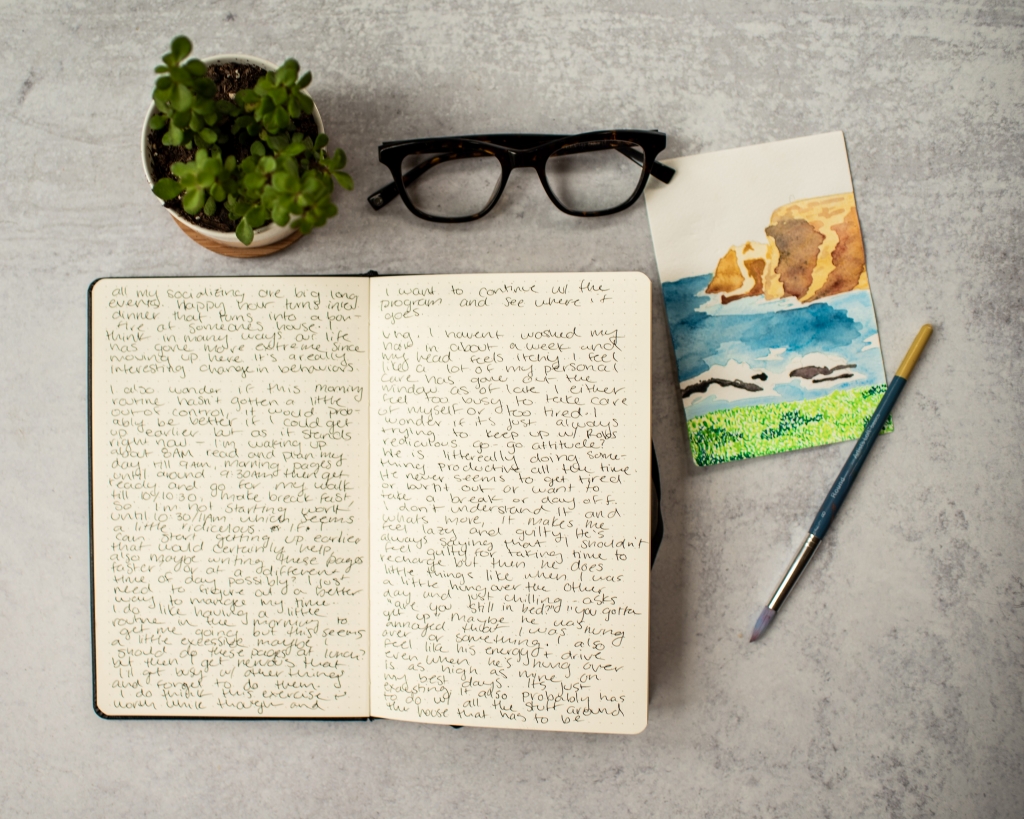 all my socializing are big long
events. Happy hour turns into
dinner that turns into a bon-
fire at someones house. I
think in many ways our life
has gone more extreme since
moving up here it's a really
interesting change in behaviors.
I also wonder if this morning
routine hasn't gotten a little
out of control, it would prob-
ably be better if I could get
up earlier but as it stands
right now - I'm waking up
about 8AM read and plan my
day till 9am, morning pages
until around 9:30AM then get
ready and go for my walk
till 10/10:30, make breakfast,
So I'm not starting work
until 10:30/11AM which seems
a little ridiculous. If I
can start getting up earlier
that would certainly help,
also maybe writing these pages
faster or at a different
time of day possibly? I just
need to figure out a better
way to manage my time.
I do like having a little
routine in the morning to
get me going but this seems
a little excessive maybe I
should do these pages at lunch?
but then I get nervous that
I'll get busy w/ other things
and forget to do them.
I do think this exercise is
worth while though and
I want to continue w/ the
program and see where it
goes.
I haven't washed my
hair in about a week and
my head feels itchy I feel
like a lot of my personal
care has gone out the
window as of late I either
feel too busy to take care
of myself or too tired. I
wonder if it's just always
trying to keep up w/
rediculous go-go attitude?
He is litterally doing some-
thing productive all the time.
He never seems to get tired
or worn out or want to
take a break or day off.
I don't understand it and
whats more, it makes me
feel lazy and guilty. He's
always saying that I shouldn't
feel guilty for taking time to
recharge but then he does
little things like when I was
a little hungover the other
day and just chilling - asks
"are you still in bed?" "you gotten
get up" maybe he was
annoyed that I was hung
over or something. I also
feel like his energy + drive
even when he's hung over
is as high as mine on
my best days. It's just
exausting it also probably has
to do w/ all the stuff around
the house that has to be